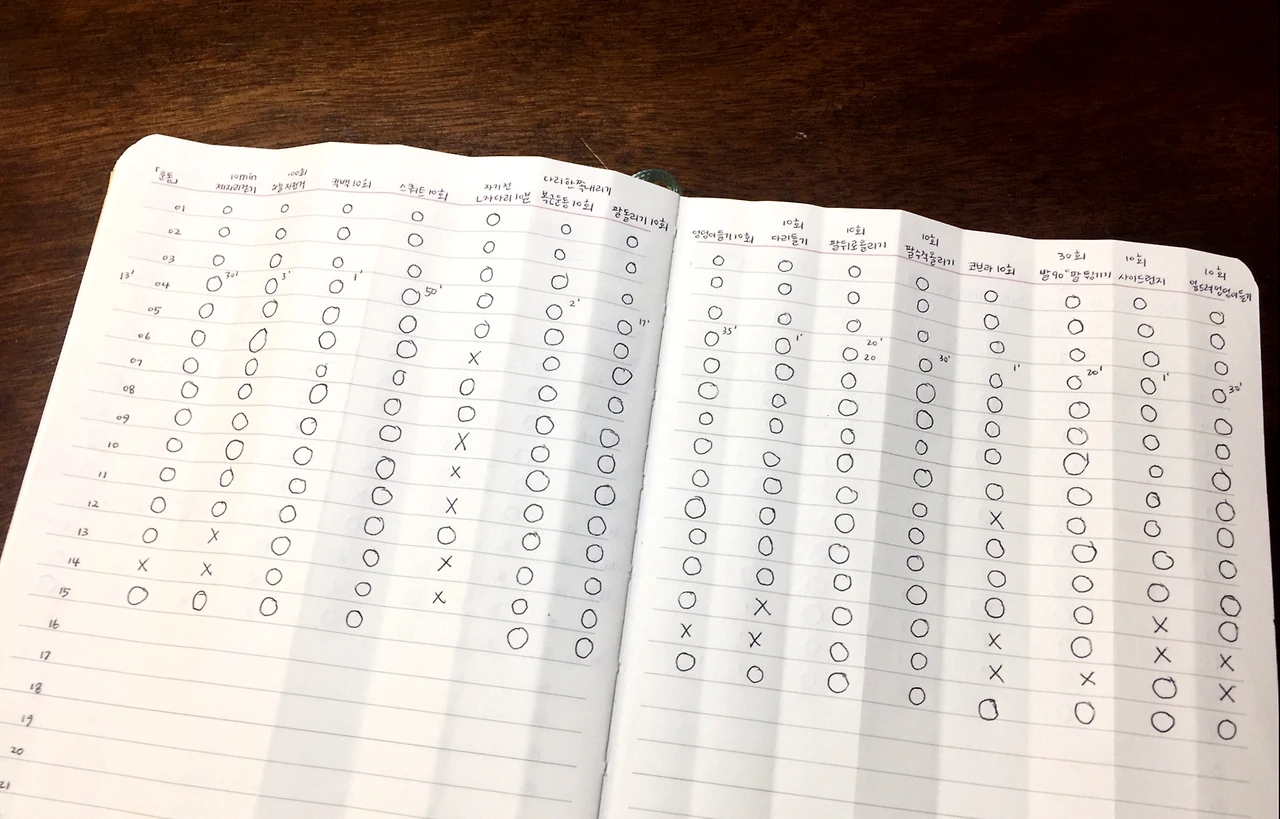 「운동」 10min 제자리걷기 100회 꼭백 10회 스쿼트 10회 자기전 L자다리 10분 다리한쪽내리기 복근운동 10회 팔돌리기 10회 엉덩이들기 10회 10회 다리들기 10회 팔뒤로올리기 10회 팔수직올리기 코브라 10회 30회 발90° 팔 튕기기 10회 사이드런지 10회 엎드려엉덩이들기
01 ○ ○ ○ ○ ○ ○ ○ ○ ○ ○ ○ ○ ○ ○ ○
02 ○ ○ ○ ○ ○ ○ ○ ○ ○ ○ ○ ○ ○ ○ ○
03 ○ ○ ○ ○ ○ ○ ○ ○ ○ ○ ○ ○ ○ ○ ○
13' 04 ○ 70' ○ 3' ○ 1' ○ 50' ○ ○ 2' ○ 17' ○ 35' ○ 1' ○ 20' 20 ○ 30' ○ 1' ○ 20' ○ 1' ○ 30'
05 ○ ○ ○ ○ ○ ○ ○ ○ ○ ○ ○ ○ ○ ○ ○
06 ○ ○ ○ ○ × ○ ○ ○ ○ ○ ○ ○ ○ ○ ○
07 ○ ○ ○ ○ ○ ○ ○ ○ ○ ○ ○ ○ ○ ○ ○
08 ○ ○ ○ ○ ○ ○ ○ ○ ○ ○ ○ ○ ○ ○ ○
09 ○ ○ ○ ○ × ○ ○ ○ ○ ○ ○ × ○ ○ ○
10 ○ ○ ○ ○ × ○ ○ ○ ○ ○ ○ ○ ○ ○ ○
11 ○ ○ ○ ○ × ○ ○ ○ ○ ○ ○ ○ ○ ○ ○
12 ○ ○ ○ ○ ○ ○ ○ ○ ○ ○ ○ ○ ○ ○ ○
13 ○ × ○ ○ × ○ ○ ○ × ○ ○ × ○ × ○
14 × × ○ ○ × ○ ○ × × ○ ○ × × × ×
15 ○ ○ ○ ○ ○ ○ ○ ○ ○ ○ ○ ○ ○ ×
16 ○
17
18
19
20
21